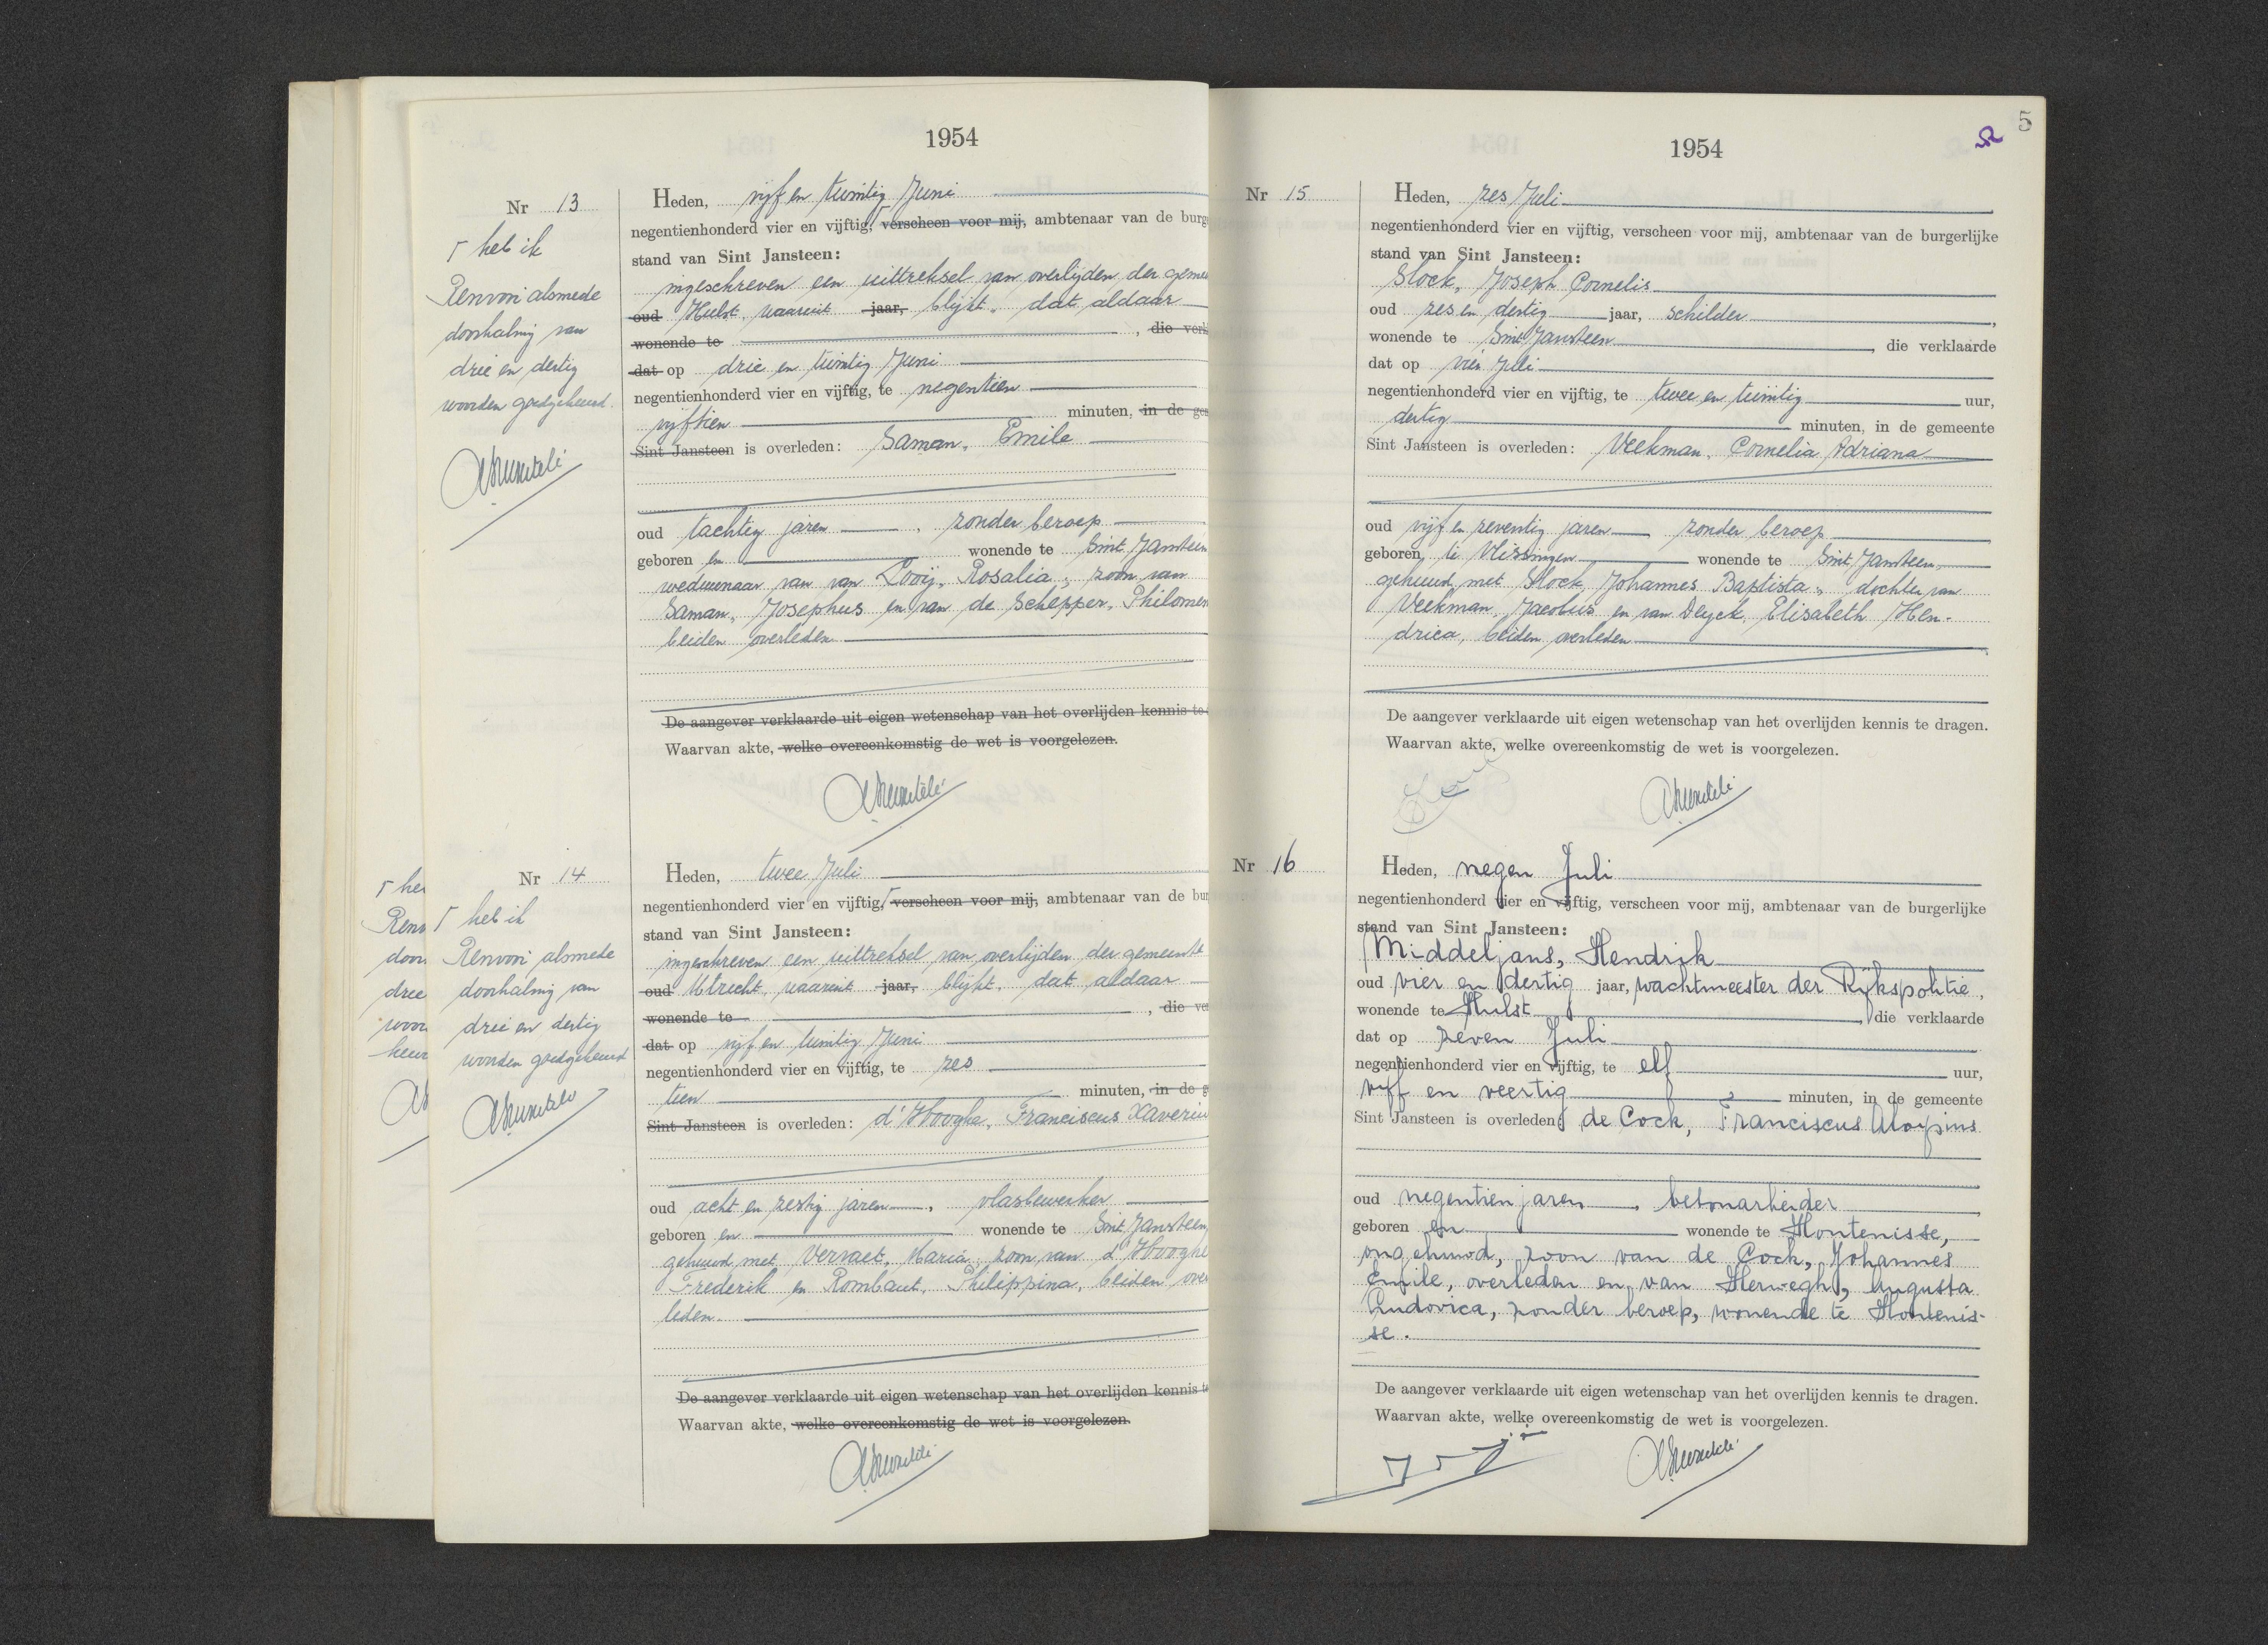 1954
Nr 13
Heden, vijf en twintig Juni
negentienhonderd vier en vijftig, ┌ verscheen voor mij, ambtenaar van de burg
stand van Sint Jansteen:
ingeschreven een uittreksel van overlijden der geme
oud Hulst, waaruit jaar, blijkt, dat aldaar
wonende te , die verk
dat op drie en twintig Juni
negentienhonderd vier en vijftig, te negentien
vijftien minuten, in de ge
Sint Jansteen is overleden: Saman, Emile
oud tachtig jaren, zonder beroep
geboren en wonende te Sint Jansteen
weduwnaar van van Looij, Rosalia, zoon van
Saman, Josephus en van de Schepper, Philomen
beiden overleden
De aangever verklaarde uit eigen wetenschap van het overlijden kennis te
Waarvan akte, welke overeenkomstig de wet is voorgelezen.
┌ heb ik
Renvooi alsmede
doorhaling van
drie en dertig
woorden goedgekeurd.
Nr 14
Heden, twee Juli
negentienhonderd vier en vijftig, ┌ verscheen voor mij, ambtenaar van de bur
stand van Sint Jansteen:
ingeschreven een uittreksel van overlijden der gemeente
oud Utrecht, waaruit jaar, blijkt, dat aldaar
wonende te , die ve
dat op vijf en twintig Juni
negentienhonderd vier en vijftig, te zes
tien minuten, in de g
Sint Jansteen is overleden: d'Hooghe, Franciscus Xaveriu
oud acht en zestig jaren, vlasbewerker
geboren en wonende te Sint Jansteen,
gehuwd met Vervaet, Maria, zoon van d'Hooghe
Frederik en Rombaut, Philippina, beiden over
leden.
De aangever verklaarde uit eigen wetenschap van het overlijden kennis t
Waarvan akte, welke overeenkomstig de wet is voorgelezen.
┌ heb ik
Renvooi alsmede
doorhaling van
drie en dertig
woorden goedgekeurd
┌ he
Renv
door
drie
woor
keur
5
1954
Nr 15
Heden, zes Juli
negentienhonderd vier en vijftig, verscheen voor mij, ambtenaar van de burgerlijke
stand van Sint Jansteen:
Slock, Joseph Cornelis
oud zes en dertig jaar, schilder,
wonende te Sint Jansteen, die verklaarde
dat op vier Juli
negentienhonderd vier en vijftig, te twee en twintig uur,
dertig minuten, in de gemeente
Sint Jansteen is overleden: Veekman, Cornelia Adriana
oud vijf en zeventig jaren zonder beroep
geboren te Vlissingen wonende te Sint Jansteen,
gehuwd met Slock, Johannes Baptista, dochter van
Veekman, Jacobus en van Deyck, Elisabeth Hen-
drica, beiden overleden
De aangever verklaarde uit eigen wetenschap van het overlijden kennis te dragen.
Waarvan akte, welke overeenkomstig de wet is voorgelezen.
Nr 16
Heden, negen Juli
negentienhonderd vier en vijftig, verscheen voor mij, ambtenaar van de burgerlijke
stand van Sint Jansteen:
Middeljans, Hendrik
oud vier en dertig jaar, wachtmeester der Rijkspolitie,
wonende te Hulst, die verklaarde
dat op zeven Juli
negentienhonderd vier en vijftig, te elf uur,
vijf en veertig minuten, in de gemeente
Sint Jansteen is overleden: de Cock, Franciscus Aloysius
oud negentien jaren, betonarbeider
geboren en wonende te Hontenisse,
ongehuwd, zoon van de Cock, Johannes
Emile, overleden en van Herwegh, Augusta
Ludovica, zonder beroep, wonende te Hontenis-
se.
De aangever verklaarde uit eigen wetenschap van het overlijden kennis te dragen.
Waarvan akte, welke overeenkomstig de wet is voorgelezen.